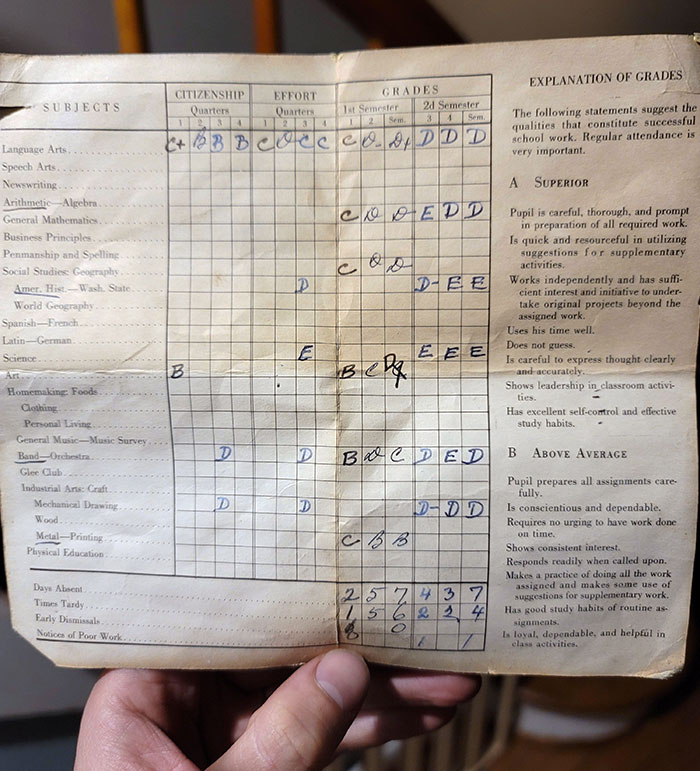 SUBJECTS CITIZENSHIP EFFORT GRADES
Quarters Quarters 1st Semester 2d Semester
1 2 3 4 1 2 3 4 1 2 Sem. 3 4 Sem.
Language Arts C+ B B B C D C C C D- D+ D D D
Speech Arts
Newswriting
Arithmetic—Algebra
General Mathematics C D D E D D
Business Principles
Penmanship and Spelling
Social Studies: Geography C D D
Amer. Hist.—Wash. State D D- E E
World Geography
Spanish—French
Latin—German
Science E E E E
Art B B C
Homemaking: Foods
Clothing
Personal Living
General Music—Music Survey
Band—Orchestra D D B D C D E D
Glee Club
Industrial Arts: Craft
Mechanical Drawing D D D- D D
Wood
Metal—Printing C B B
Physical Education
Days Absent 2 5 7 4 3 7
Times Tardy 1 5 6 2 2 4
Early Dismissals 0
Notices of Poor Work 1 1
EXPLANATION OF GRADES
The following statements suggest the
qualities that constitute successful
school work. Regular attendance is
very important.
A SUPERIOR
Pupil is careful, thorough, and prompt
in preparation of all required work.
Is quick and resourceful in utilizing
suggestions for supplementary
activities.
Works independently and has suffi-
cient interest and initiative to under-
take original projects beyond the
assigned work.
Uses his time well.
Does not guess.
Is careful to express thought clearly
and accurately.
Shows leadership in classroom activi-
ties.
Has excellent self-control and effective
study habits.
B ABOVE AVERAGE
Pupil prepares all assignments care-
fully.
Is conscientious and dependable.
Requires no urging to have work done
on time.
Shows consistent interest.
Responds readily when called upon.
Makes a practice of doing all the work
assigned and makes some use of
suggestions for supplementary work.
Has good study habits of routine as-
signments.
Is loyal, dependable, and helpful in
class activities.